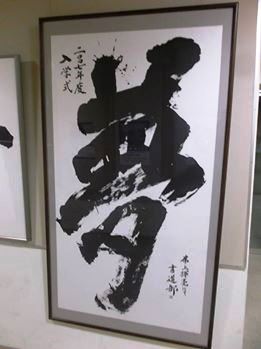 二〇〇七年度
入学式
夢
書道部